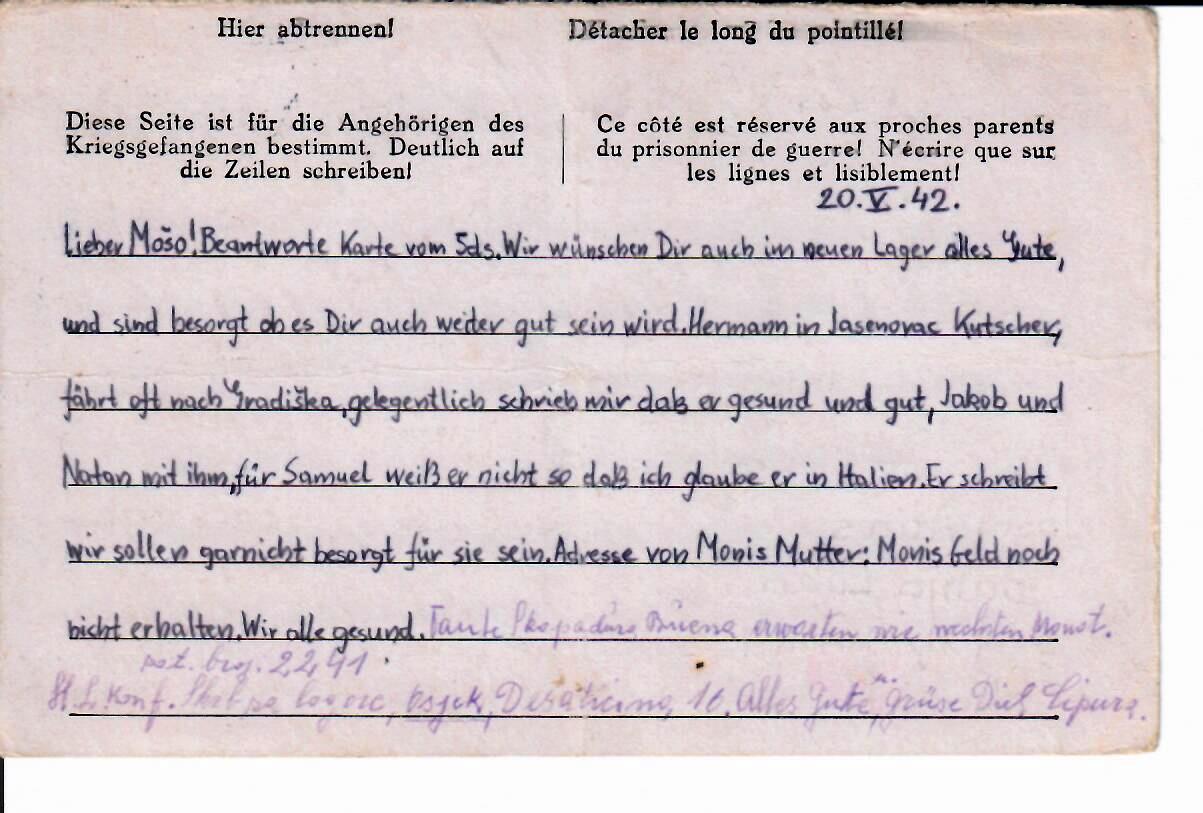 Hier abtrennen!
Détacher le long du pointillé!
Diese Seite ist für die Angehörigen des
Kriegsgefangenen bestimmt. Deutlich auf
die Zeilen schreiben!
Ce côté est réservé aux proches parents
du prisonnier de guerre! N'écrire que sur
les lignes et lisiblement!
20.V.42.
Lieber Mošo! Beantworte Karte vom 5ds. Wir wünschen Dir auch im neuen Lager alles Gute,
und sind besorgt ob es Dir auch weiter gut sein wird. Hermann in Jasenovac Kutscher,
fährt oft nach Gradiška, gelegentlich schrieb mir daß er gesund und gut, Jakob und
Natan mit ihm, für Samuel weiß er nicht so daß ich glaube er in Italien. Er schreibt
wir sollen garnicht besorgt für sie sein. Adresse von Monis Mutter: Monis Geld noch
nicht erhalten. Wir alle gesund. Tante erwarten wir nechsten Monat.
broj. 2241
H. L. Konf. Osjek, 16. Alles Gute, grüse Dich